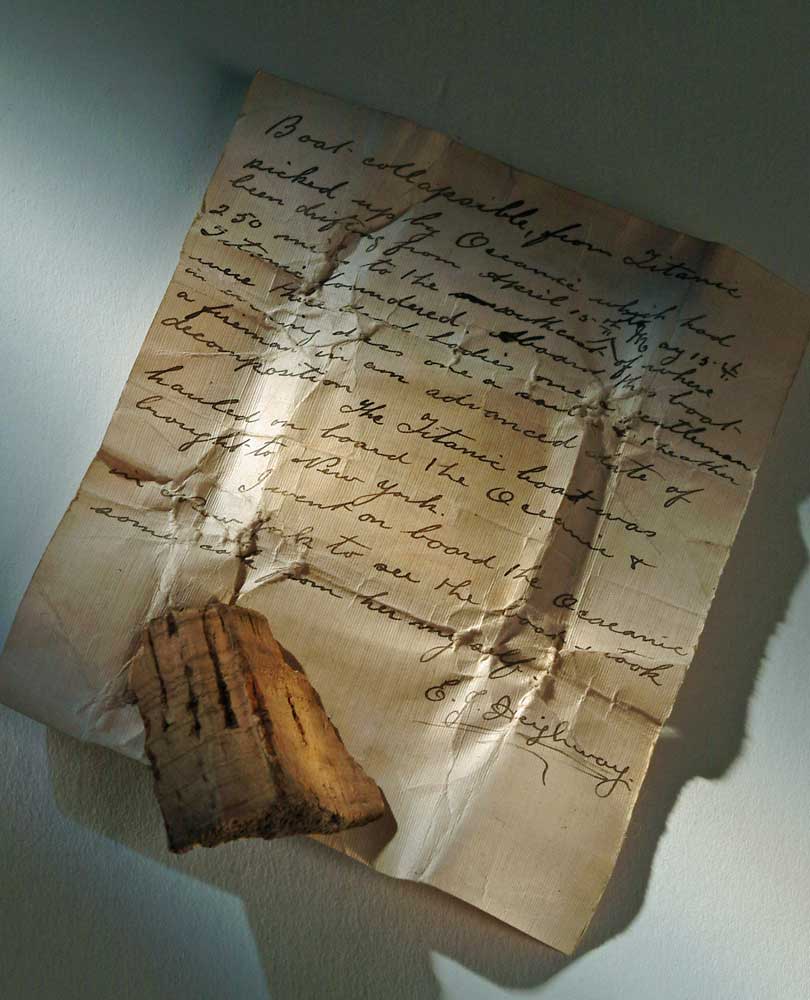 Boat collapsible, from Titanic
picked up by Oceanic which had
been drifting from April 15th to May 13th
250 miles to the of where
Titanic foundered; aboard this boat
were three dead bodies one a gentleman
in evening dress one a sailor & the other
a fireman in an advanced state of
decomposition. The Titanic boat was
hauled on board the Oceanic &
brought to New York.
I went on board the Oceanic
in New York to see the boat & took
some cork from her myself.
E. J. Heighway.